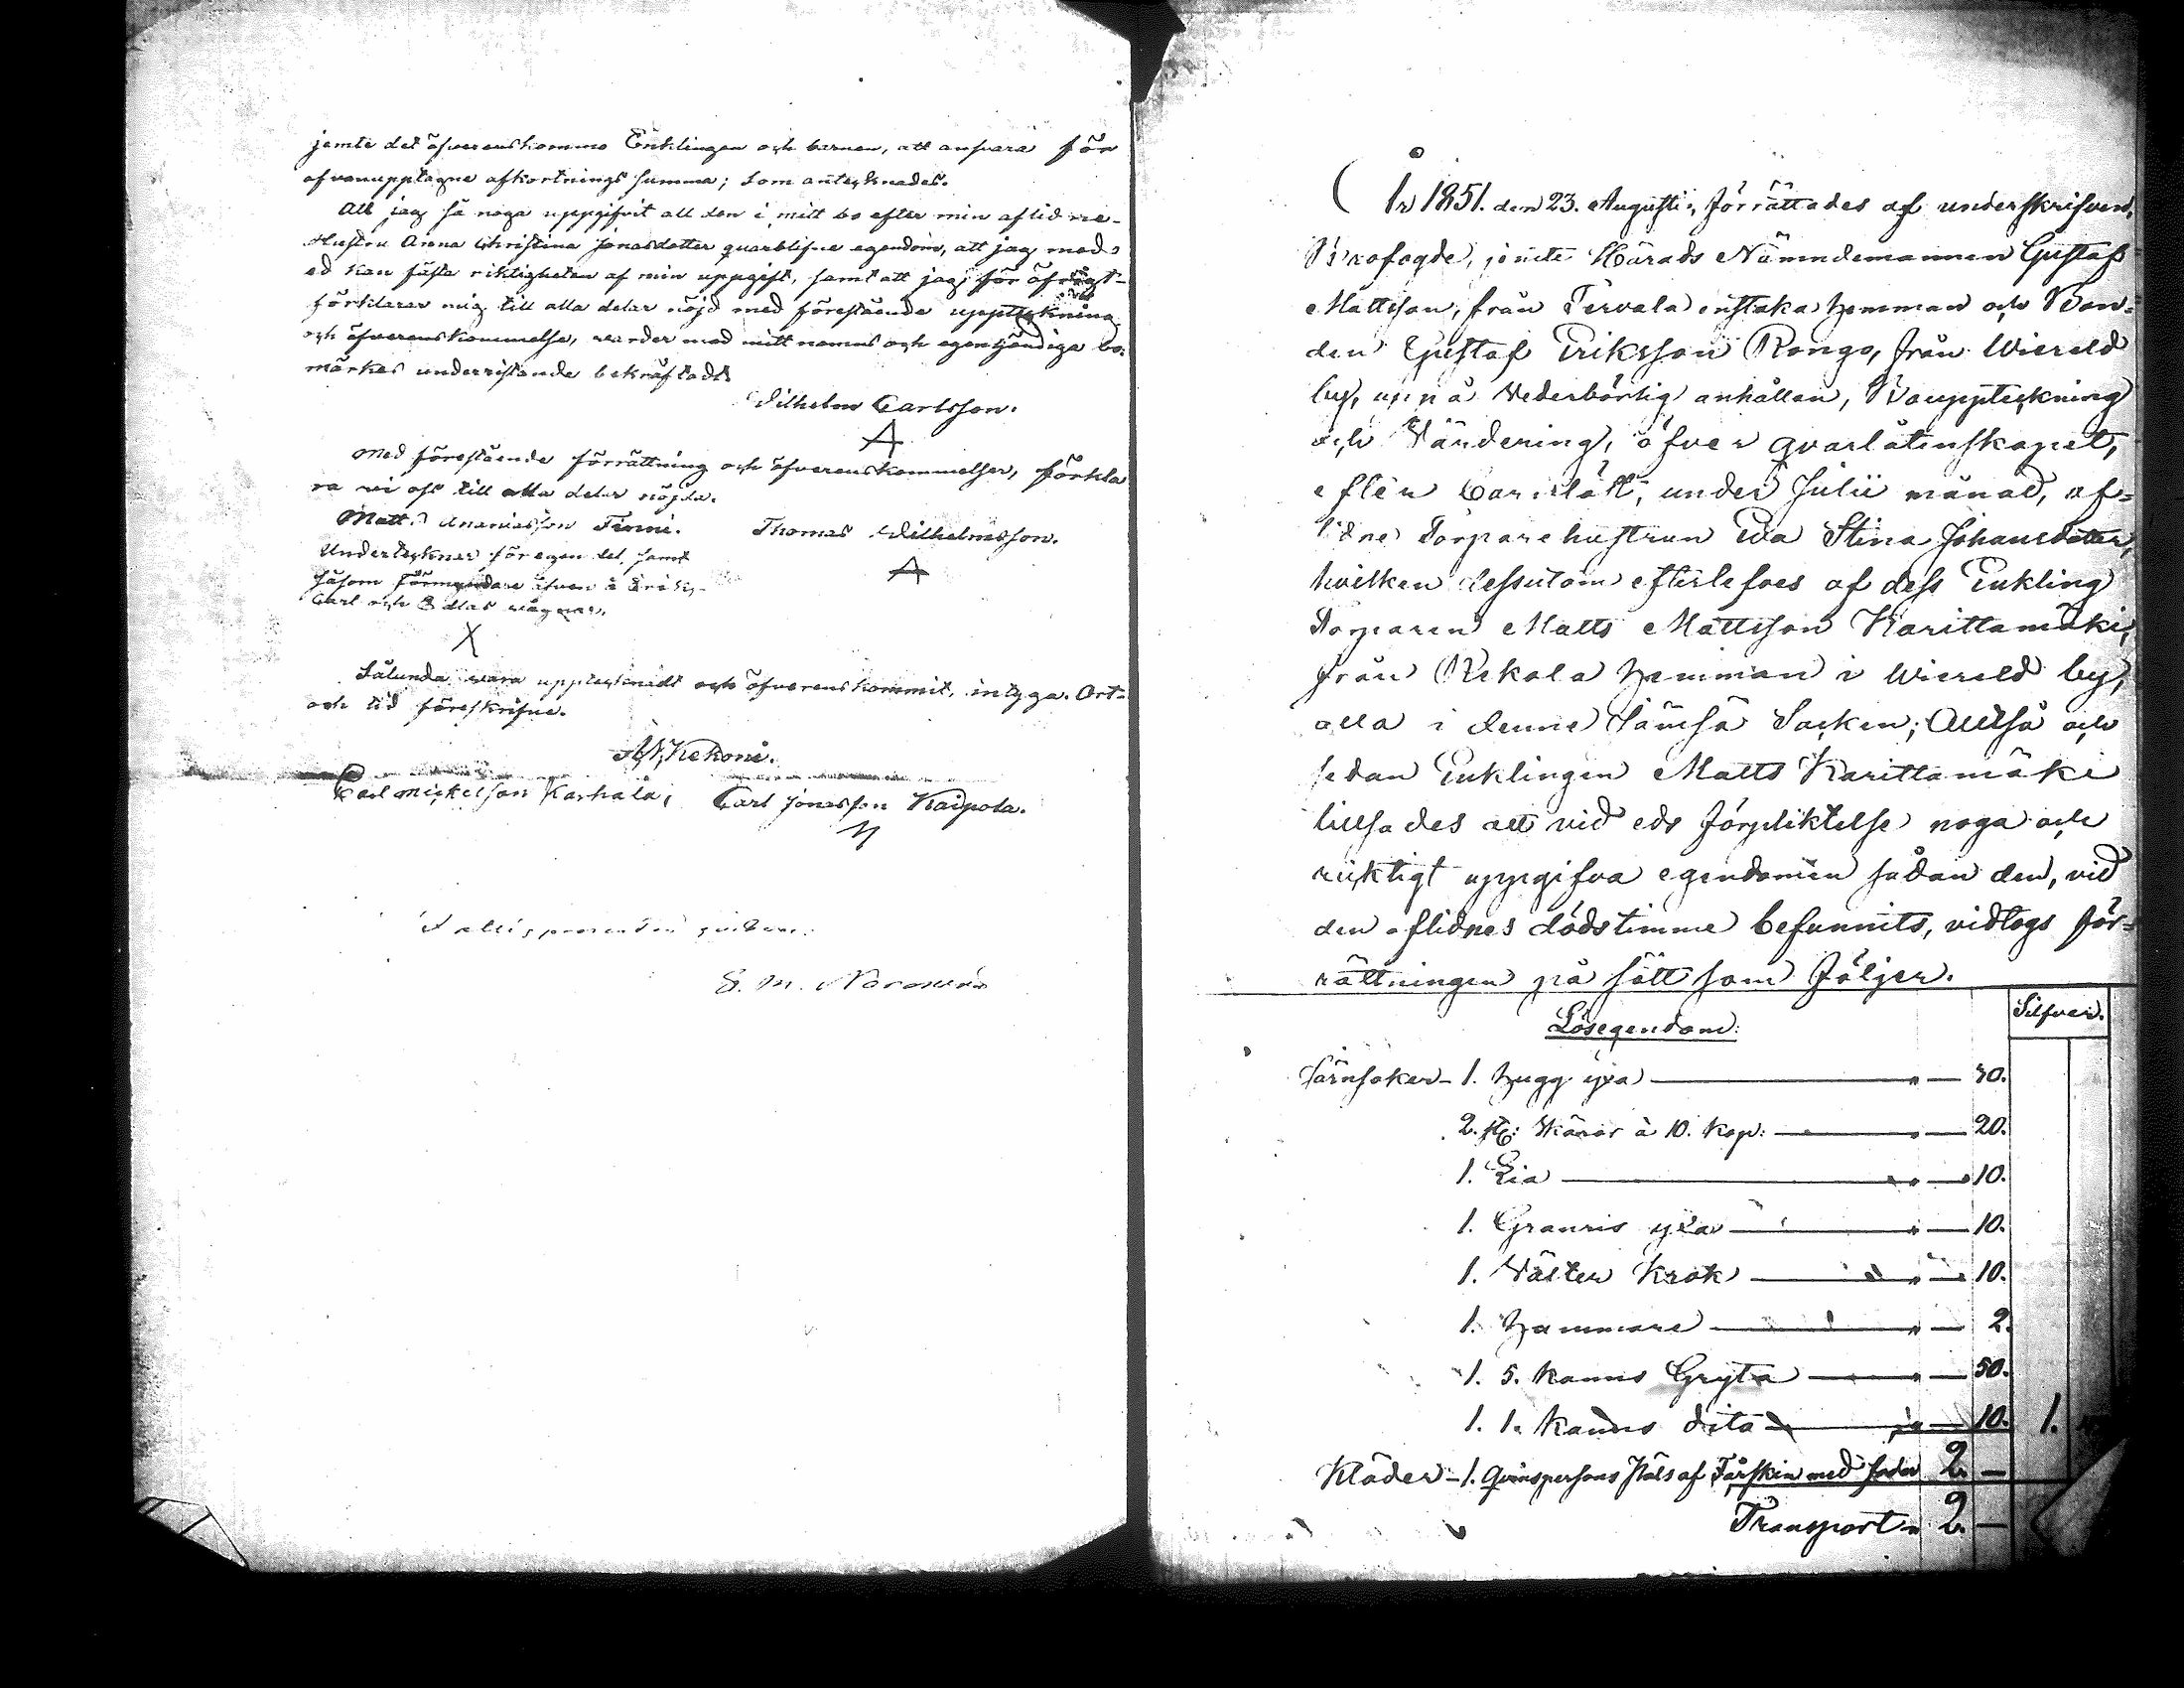 jemte det öfverenskommo Enklingen och barnen, att ansvara för
ofvanupptagne afkortnings summa; som antecknades.
Att jag så noga uppgifvit all den i mitt bo efter min aflidne
Hustru Anna Christina Jonasdotter quarblifne egendom, att jag med
ed kan fästa riktigheten af min uppgift, samt att jag för öfrigt
förklarar mig till alla delar nöjd med förestående uppteckning
och öfverenskommelse, varder med mitt namns och egenhändiga bo-
märkes underristande bekräftadt
Wilhelm Carlsson.
Med förestående förrättning och öfverenskommelser, förkla
ra vi oss till alla delar nöjda.
Matts Ananiasson Tommi. Thomas Wilhelmsson.
Undertecknar för egen del, samt
såsom förmyndare äfven å
Carl och vägnar.
Sålunda vara upptecknadt och öfverenskommit, intyga. Ort
och tid föreskrifne.
Kekoni.
Carl Mickelson Karhala; Carl Jonasson Kaipola.
S. M.
År 1851. den 23. Augusti, förrättades af underskrifven,
Skofogde, jemte Härads Nämndemannen Gustaf
Mattsson, från Tervala enstaka hemman och Bon-
den Gustaf Eriksson Rongo, från Wiereld
by, uppå Vederbörlig anhållan, Bouppteckning
och Värdering, öfver qvarlåtenskapet,
efter under Julii månad, af-
lidne Torpare hustrun Eva Stina Johansdotter,
hvilken dessutom efterlefves af dess Enkling
Torparen Matts Mattsson Karittamäki,
från Rekola hemman i Wiereld by,
alla i denne Jämsä Socken; Alltså och
sedan Enklingen Matts Karittamäki
tillsades att vid eds förpliktelse noga och
ricktigt uppgifva egendomen sådan den, vid
den aflidnes dödstimme befunnits, vidtogs för-
rättningen på sätt som följer.
Silfver.
Lösegendom:
Järnsaker - 1. Hugg yxa " — 30.
2. st: Skäror à 10. kop: " — 20.
1. Lia " — 10.
1. Granris yxa " — 10.
1. Krok " — 10.
1. Hammare " — 2.
1. 5. kanns Gryta " — 50.
1. 1. kanns dito " — 10. 1.
Kläder - 1. Qvinspersons Päls af Fårskin med foder 2 —
Transport " 2 —